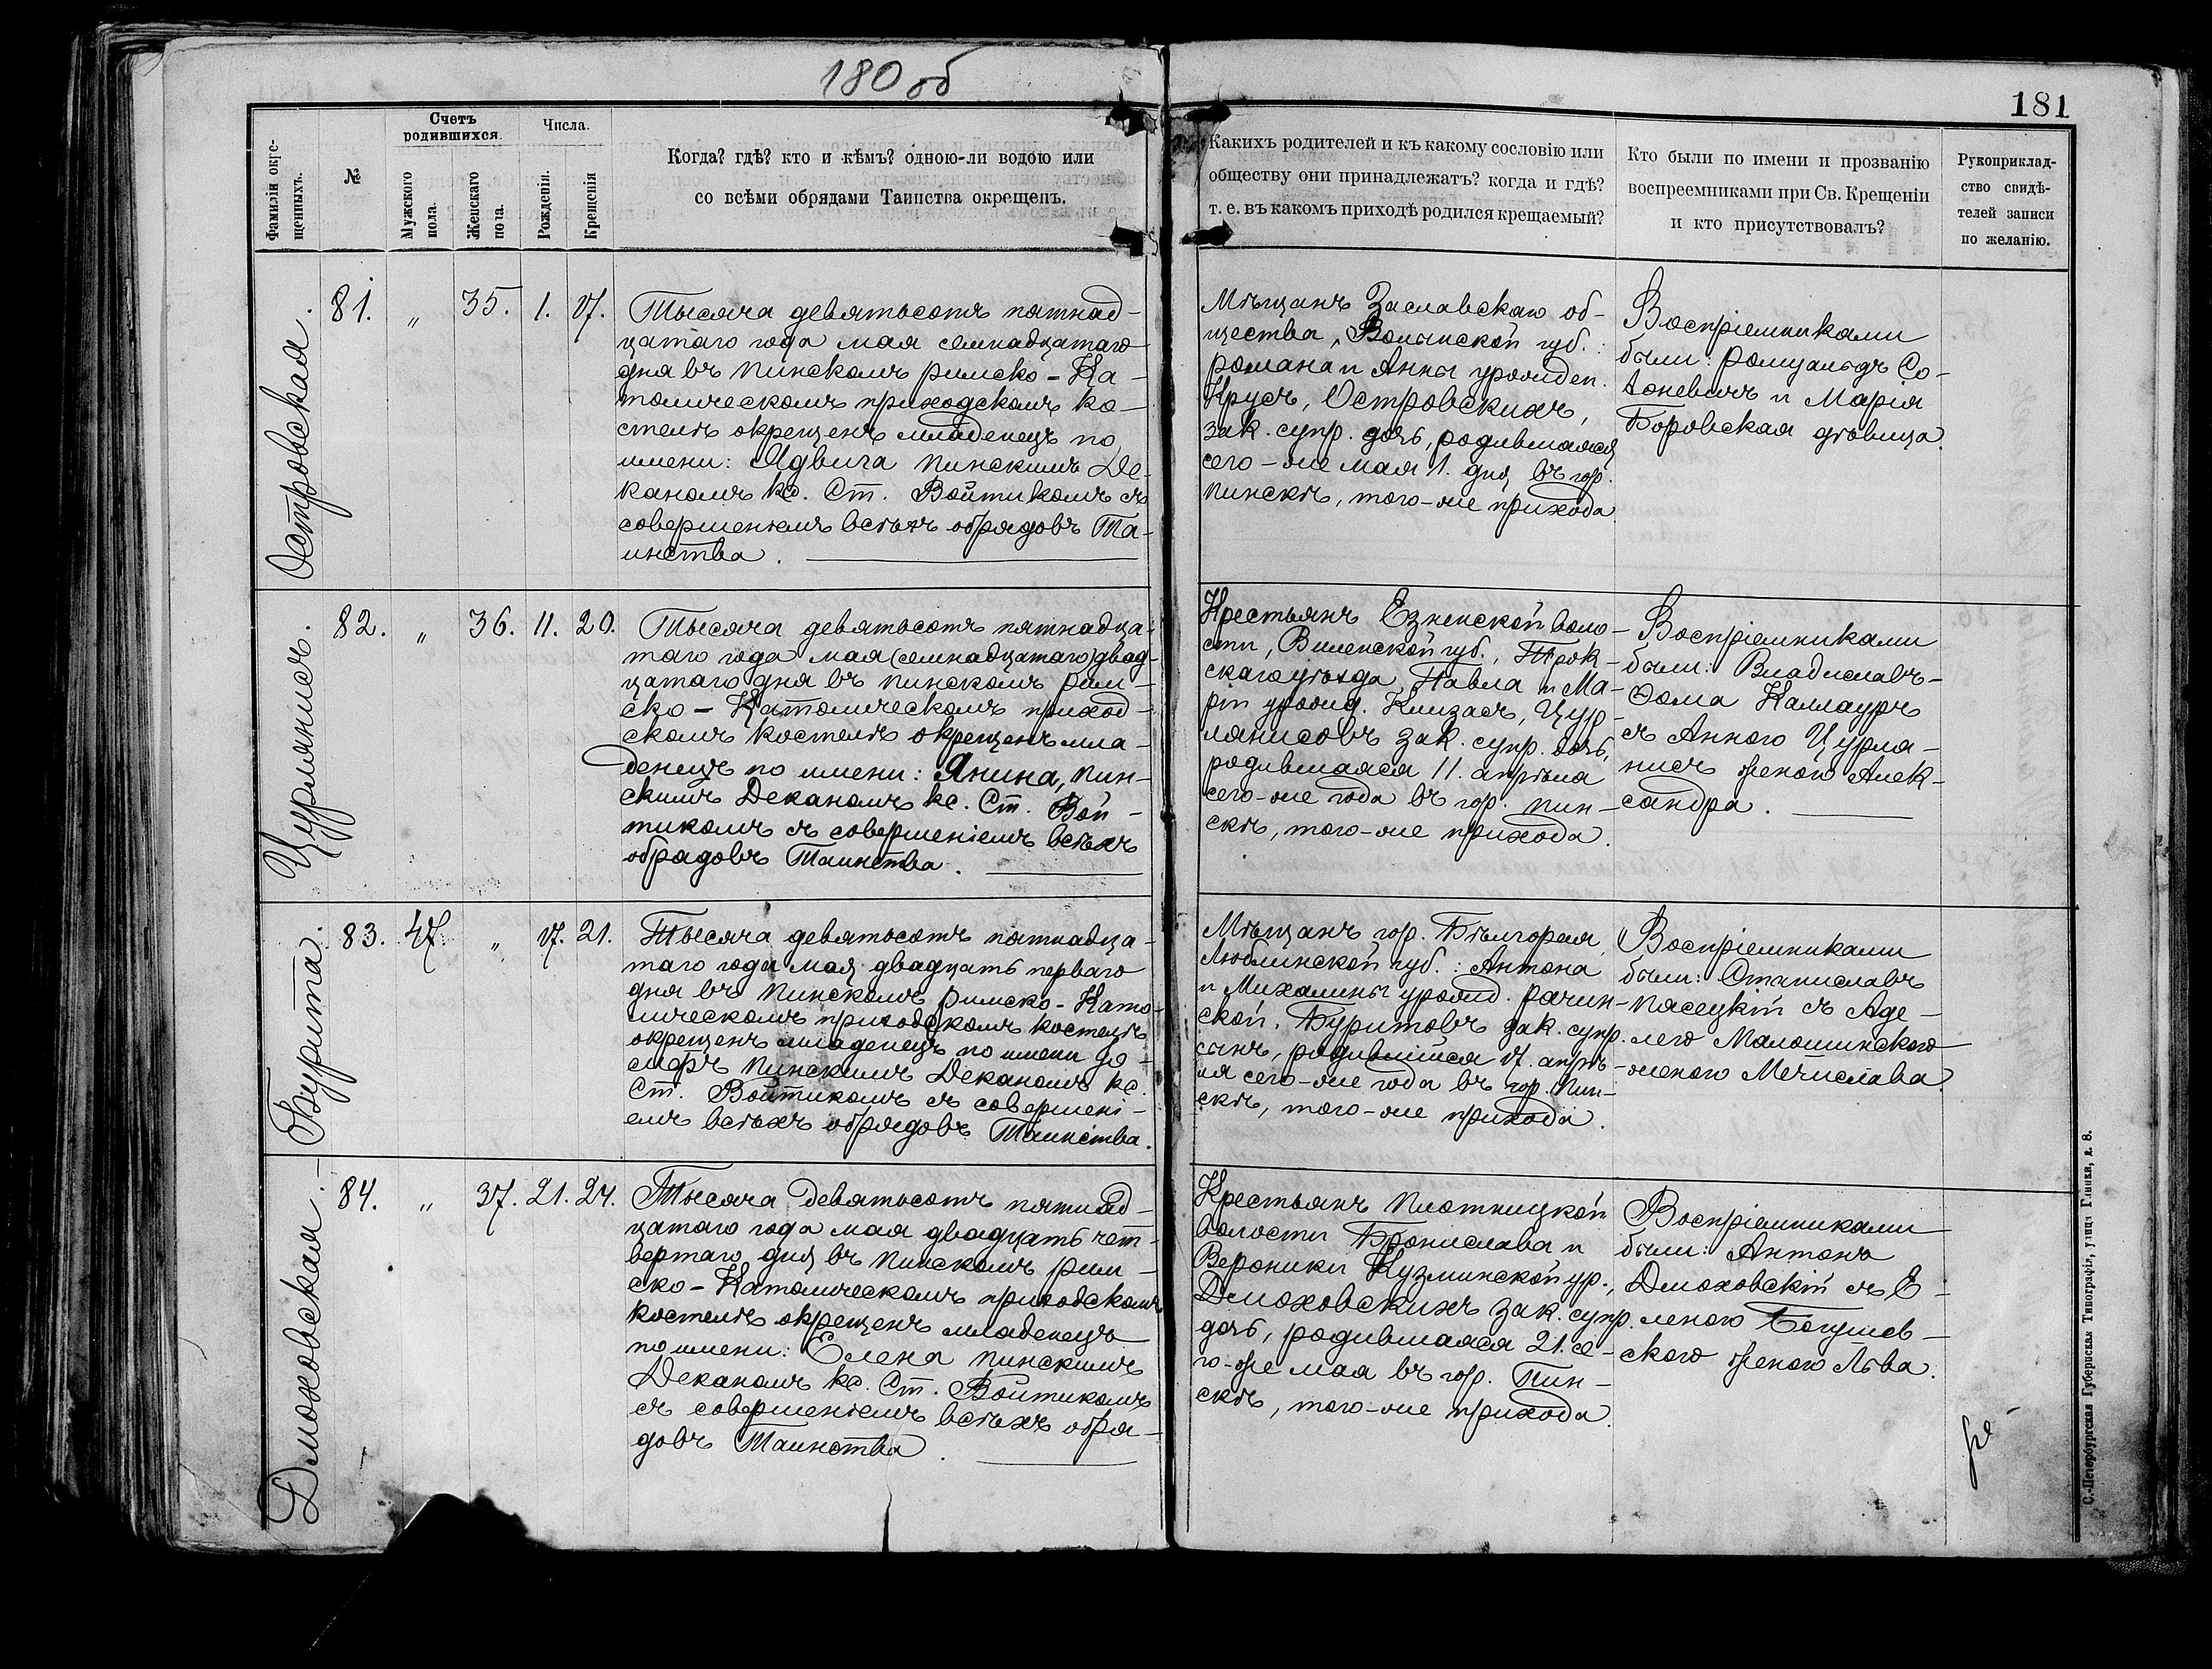 180 об
181
Фамиліи окре-
щенныхъ.
№
Счетъ
родившихся.
Мужского
пола.
Женскаго
пола.
Числа.
Рожденія.
Крещенія
Когда? гдѣ? кто и кѣмъ? одною-ли водою или
со всѣми обрядами Таинства окрещенъ.
Какихъ родителей и къ какому сословію или
обществу они принадлежатъ? когда и гдѣ?
т. е. въ какомъ приходѣ родился крещаемый?
Кто были по имени и прозванію
воспреемниками при Св. Крещеніи
и кто присутствовалъ?
Рукоприклад-
ство свидѣ-
телей записи
по желанію.
Островская.
81. „ 35. 1. 17.
Тысяча девятьсотъ пятнад-
цатаго года мая семнадцатаго
дня въ Пинскомъ римско-Ка-
толическомъ приходскомъ ко-
стелѣ окрещенъ младенецъ по
имени: Ядвига Пинскимъ Де-
каномъ кс. Ст. Войтикомъ съ
совершеніемъ всѣхъ обрядовъ Та-
инства.
Мѣщанъ Заславскаго об-
щества, Волынской губ.:
Романа и Анны урожден.
Крусъ, Островскихъ,
зак. супр. дочь, родившаяся
сего-же мая 1. дня въ гор.
Пинскѣ, того-же прихода.
Воспріемниками
были: Ромуальдъ Со-
Марія
Боровская дѣвица.
Цурлянисъ.
82. „ 36. 11. 20.
Тысяча девятьсотъ пятнадца-
таго года мая (семнадцатаго) двад-
цатаго дня въ Пинскомъ рим-
ско-Католическомъ приход-
скомъ костелѣ окрещенъ мла-
денецъ по имени: Янина, Пин-
скимъ Деканомъ кс. Ст. Вой-
тикомъ съ совершеніемъ всѣхъ
обрядовъ Таинства.
Крестьянъ Езненской воло-
сти, Виленской губ., Трок-
скаго уѣзда Павла и Ма-
ріи урожд. Климзасъ, Цур-
лянисовъ зак. супр. дочь,
родившаяся 11. апрѣля
сего-же года въ гор. Пин-
скѣ, того-же прихода.
Воспріемниками
были: Владиславъ-
Фома Каллауръ
съ Анною Цурля-
нисъ женою Алек-
сандра.
Бурита.
83. 47 „ 17. 21.
Тысяча девятьсотъ пятнадца-
таго года мая двадцать перваго
дня въ Пинскомъ римско-Като-
лическомъ приходскомъ костелѣ
окрещенъ младенецъ по имени Іо-
сифъ Пинскимъ Деканомъ кс.
Ст. Войтикомъ съ совершені-
емъ всѣхъ обрядовъ Таинства.
Мѣщанъ гор. Бѣлгорая
Люблинской губ.: Антона
и Михалины урожд. Рачин-
ской, Буритовъ зак. супр.
сынъ, родившійся 17. апрѣ-
ля сего-же года въ гор. Пин-
скѣ, того-же прихода.
Воспріемниками
были: Станиславъ
Пясецкій съ Аде-
лею Малошинскою
женою Мечислава.
Дмоховская.
84. „ 37. 21. 24.
Тысяча девятьсотъ пятнад-
цатаго года мая двадцать чет-
вертаго дня въ Пинскомъ рим-
ско-Католическомъ приходскомъ
костелѣ окрещенъ младенецъ
по имени: Елена Пинскимъ
Деканомъ кс. Ст. Войтикомъ
съ совершеніемъ всѣхъ обря-
довъ Таинства.
Крестьянъ Плотницкой
волости Бронислава и
Вероники Кузминской ур.,
Дмоховскихъ зак. супр.
дочь, родившаяся 21. се-
го-же мая въ гор. Пин-
скѣ, того-же прихода.
Воспріемниками
были: Антонъ
Дмоховскій съ Е-
леною Богушев-
скою женою Льва.
С.-Петербургская Губернская Типографія, улица Глинки, д. 8.